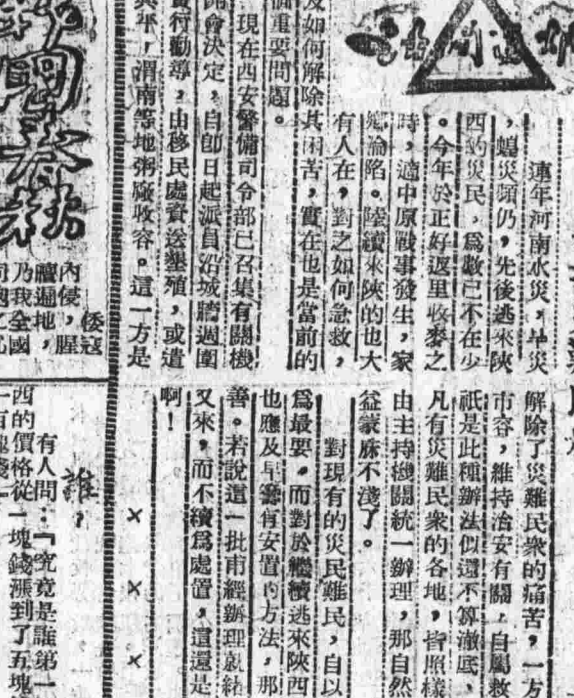 連年河南水災，旱災
，蝗災頻仍，先後逃來陝
西的災民，爲數已不在少
。今年於正好返里收麥之
時，適中原戰事發生，家
鄉淪陷。陸續來陝的也大
有人在，對之如何急救，
及如何解除其困苦，實在也是當前的
個重要問題。
現在西安警備司令部已召集有關機
開會決定，自卽日起派員沿城牆週圍
實行勸導，由移民處資送墾殖，或遣
興平，渭南等地粥廠收容。這一方是
解除了災難民衆的痛苦，一方
市容，維持治安有關，自屬救
祇是此種辦法似還不算澈底，
凡有災難民衆的各地，皆照樣
由主持機關統一辦理，那自然
益蒙庥不淺了。
對現有的災民難民，自以
爲最要。而對於繼續逃來陝西
也應及早籌有安置的方法，那
善。若說這一批甫經辦理就緒
又來，而不續爲處置，這還是
啊！
× × ×
倭寇
內侵，腥
羶遍地，
乃我全國
誰，
有人問：「究竟是誰第一
西的價格從一塊錢漲到了五塊
一百塊錢一